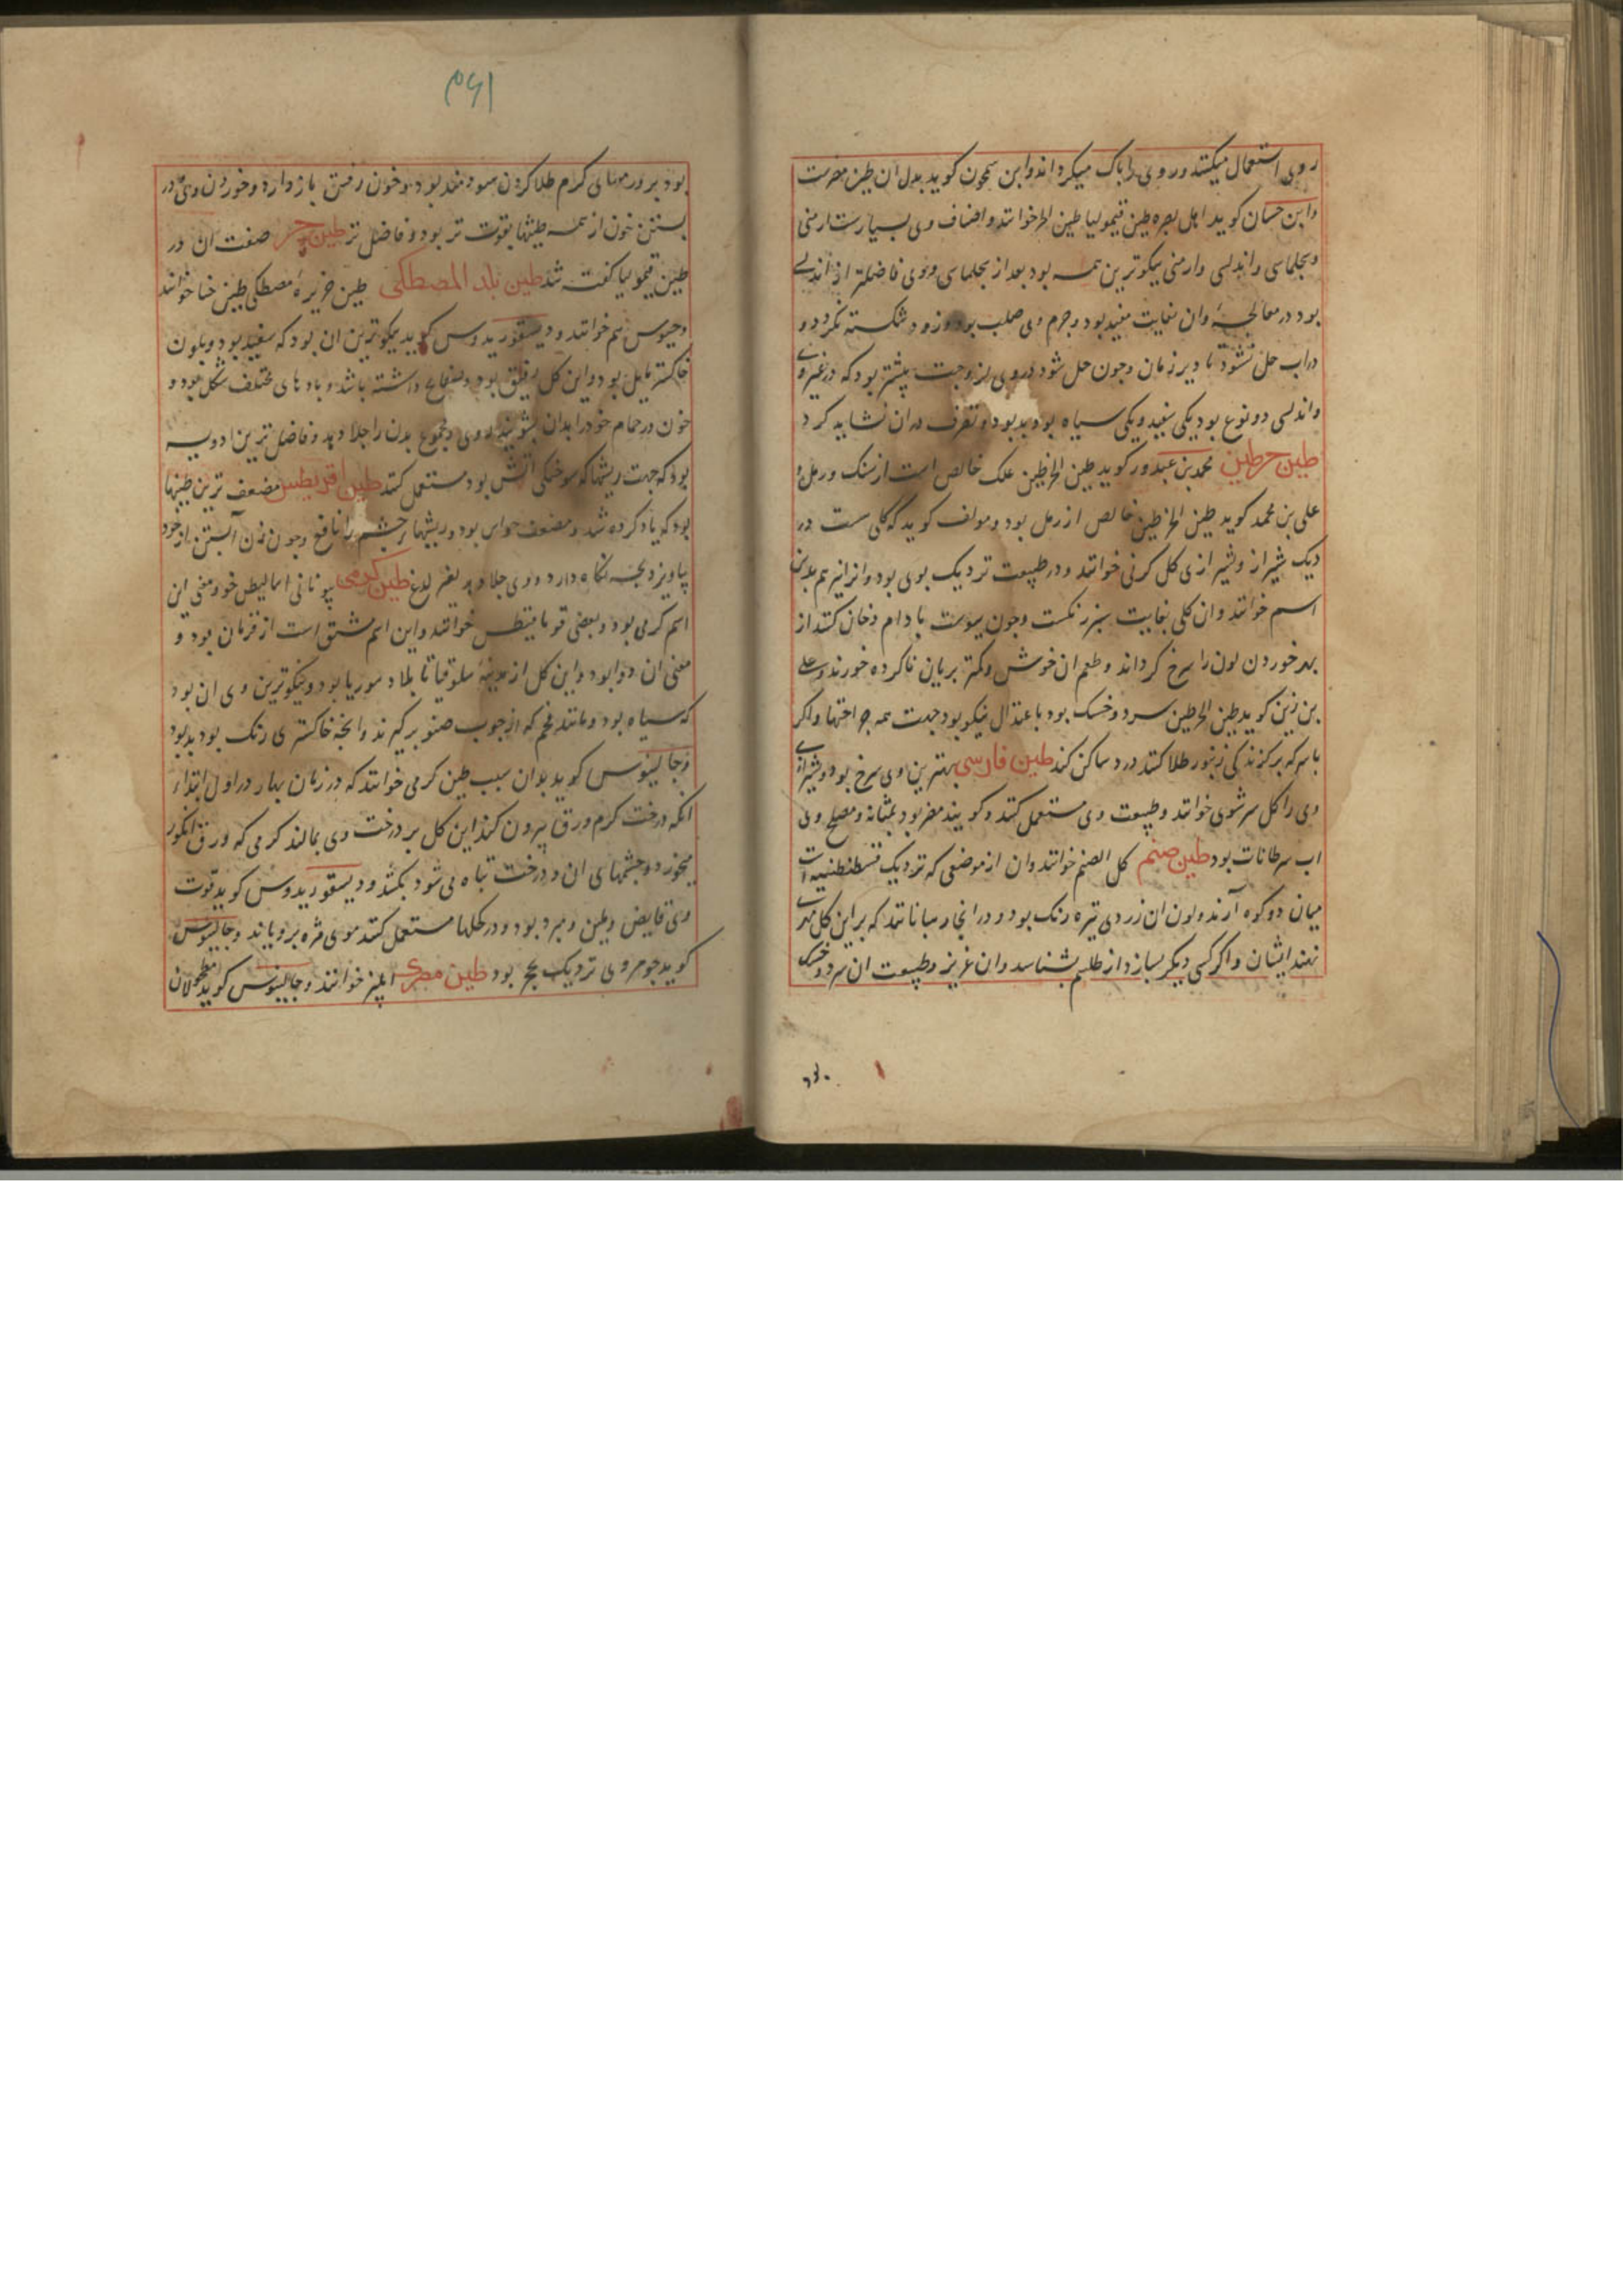 روی استعمال میکنند و روی را پاک میکرداند و ابن سمجون کوید بدل ان طین مغرت
وابن حسان کوید اهل بصره طین قیمولیا طین الحر خوانند و اصناف وی بسیارست ارمنی
وسجلماسی و اندلسی و ارمنی نیکوترین همه بود بعد از سجلماسی و وی فاضلتر از اندلسی
بود در معالجه وان بغایت سفید بود و جرم وی صلب بود و زود شکسته نکردد و
دراب حل نشود تا دیر زمان وجون حل شود در وی لزوجت بیشتر بود که در غیر وی
واندلسی دو نوع بود یکی سفید و یکی سیاه بود و بد بود و تصرف دران نشاید کرد
طین خرطین محمد بن عبدون کوید طین الخرطین علک خالص است از سنک و رمل و
علی بن محمد کوید طین الخرطین خالص از رمل بود و مولف کوید که کلی ست در
دیک شیراز و شیرازی کل کرنی خوانند و در طبیعت نزدیک بوی بود و انرا نیز هم بدین
اسم خوانند وان کلی بغایت سبز رنکست وجون بپوست بادام دخان کنند از
بهر خوردن لون را سرخ کرداند و طعم ان خوش و کمتر بریان ناکرده خورند و علی
بن زین کوید طین الخرطین سرد و خشک بود باعتدال نیکو بود جهت همه جراحتها واکر
با سرکه بر کزندکی زنبور طلا کنند درد ساکن کند طین فارسی بهترین وی سرخ بود و شیرازی
وی را کل سرشوی خوانند و طبیعت وی مستعمل کنند و کویند مضر بود بمثانه و مصلح وی
اب سرطانات بود طین صنم کل الصنم خوانند وان از موضعی که نزدیک قسطنطنیه است
میان دو کوه آرند و لون ان زردی تیره رنک بود و در انجا رهبانانند که بر این کل مهر
نهند ایشان و اکر کسی دیکر بسازد از طلسم بشناسد وان عزیز و طبیعت ان سرد و خشک
۱۶۳
بود بر ورمهای کرم طلا کردن سودمند بود و خون رفتن باز دارد و خوردن وی در
بستن خون از همه طینها بقوت تر بود و فاضل تر طین حر صفت ان در
طین قیمولیا کفته شد طین بلد المصطکی طین جزیرهٔ مصطکی طین خیا خوانند
وجیوس هم خوانند و دیسقوریدوس کوید نیکوترین ان بود که سفید بود و بلون
خاکستر مایل بود و این کل رقیق بود و صفایح داشته باشد و پارهای مختلف شکل بود و
جون در حمام خود را بدان بشویند روی و مجموع بدن را جلا دهد و فاضل ترین ادویه
بود که جهت ریشها که سوختکی اتش بود مستعمل کنند طین اقریطس مضعف ترین طینها
بود که یاد کرده شد و مضعف حواس بود و ریشهاء جشم را نافع وجون زن آبستن از خود
بیاویزد بچه نکاه دارد و وی جلا دهد بغیر لدغ طین کرمی بیونانی امبالیطس خود معنی این
اسم کرمی بود و بعضی فرماقیطس خوانند و این اسم مشتق است از فرمان بود و
معنی ان دوا بود و این کل از مدینهٔ سلوقیا تا بلاد سوریا بود و نیکوترین وی ان بود
که سیاه بود و مانند فحم که از جوب صنوبر کیرند و انجه خاکستری رنک بود بد بود
وجالینوس کوید بدان سبب طین کرمی خوانند که در زمان بهار در اول ابتداء
انکه درخت کرم ورق بیرون کند این کل بر درخت وی بمالند کرمی که ورق انکور
میخورد و جشمهای ان و درخت تباه می شود بکشد و دیسقوریدوس کوید قوت
وی قابض و ملین و مبرد بود و در کحلها مستعمل کنند موی مژه برویاند وجالینوس
کوید جوهر وی نزدیک بحجر بود طین مصری ابلیز خوانند وجالینوس کوید مطحولان